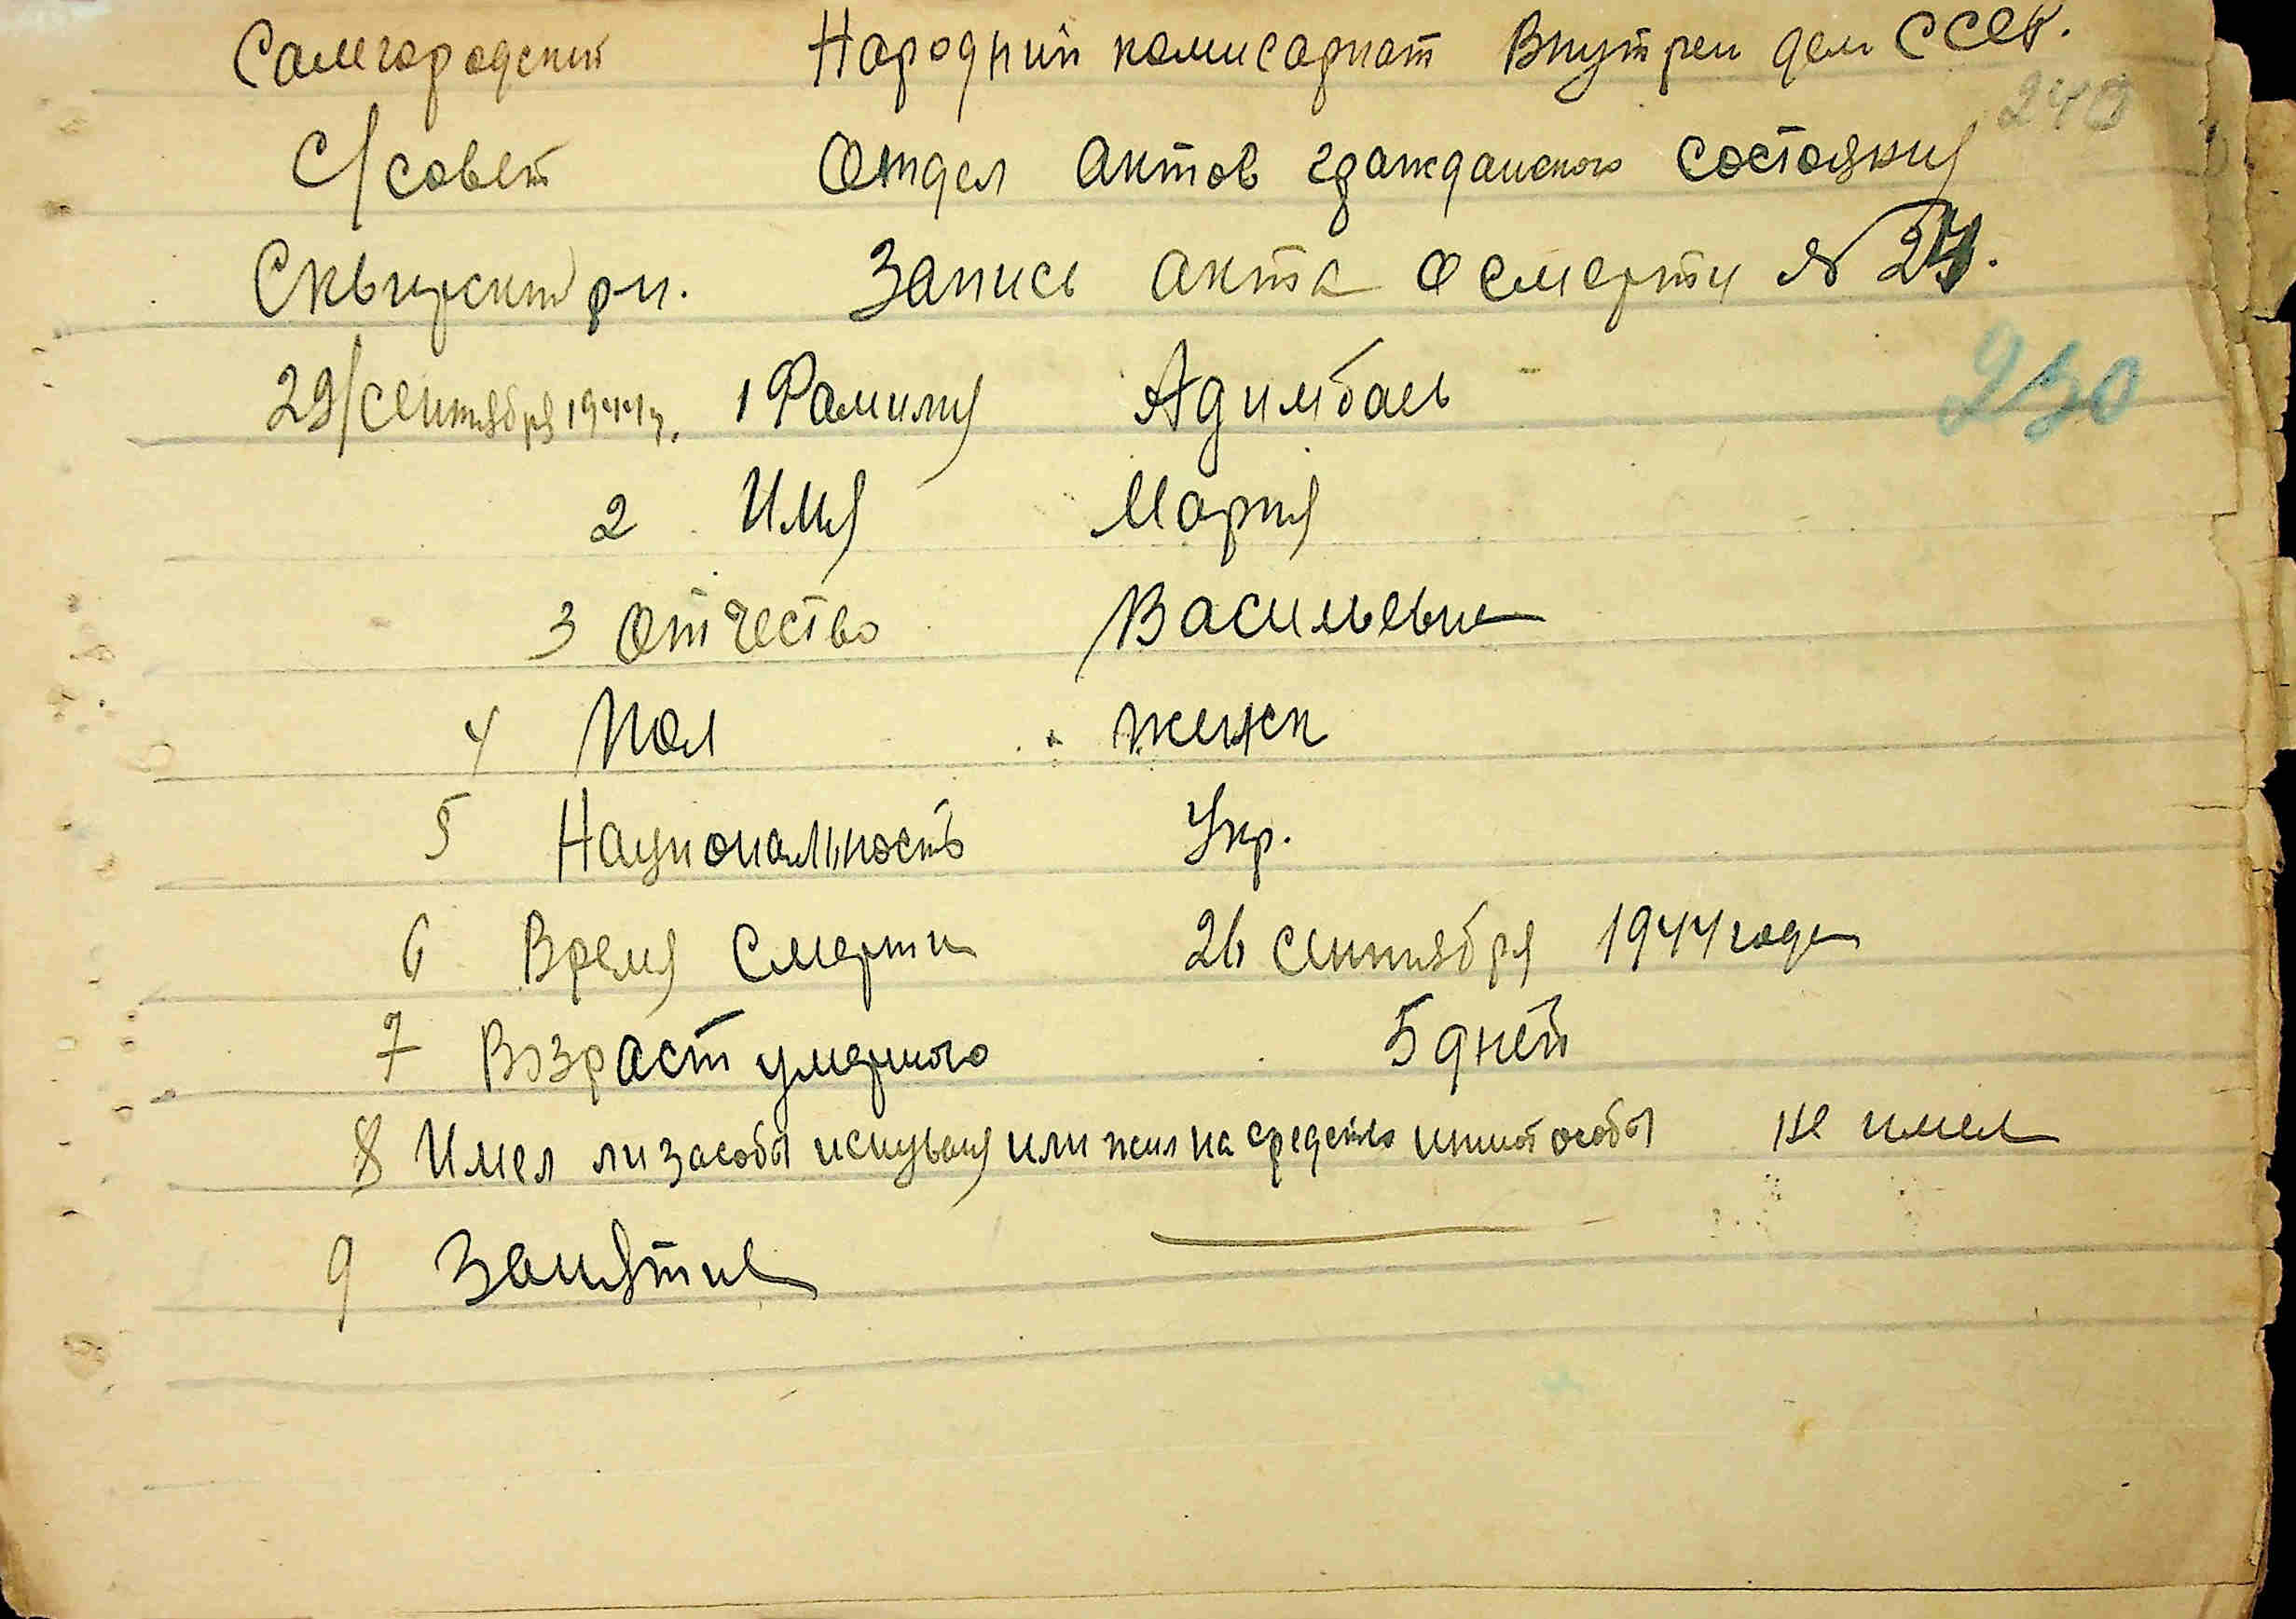 Самгородский Народний комисариат Внутрен дел СССР.
240
С/совет Отдел актов гражданского состояния
Сквирский р-н. Запись акта о смерти № 24.
29/сентября 1944 г. 1 Фамилия Адимбаев
230
2 Имя Мария
3 Отчество Васильевна
4 Пол женск
5 Национальность Укр.
6 Время Смерти 26 сентября 1944 года
7 Возраст умершого 5 дней
8 Имел ли засобы или жил на средства иншой особы не имел
9 Занятие